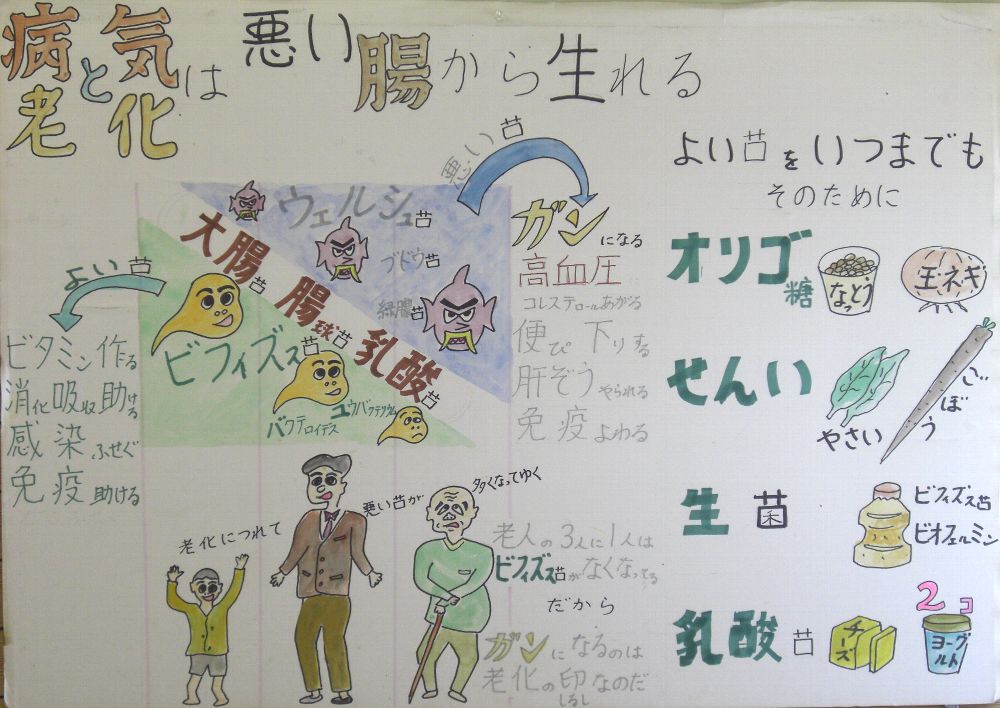 病気と老化は 悪い腸から生れる
悪い苩
ウェルシュ苩
ブドウ苩
緑膿苩
大腸苩
腸球苩
乳酸苩
ビフィズス苩
ユウバクテリウム
バクテロイデス
よい苩
ビタミン作る
消化吸収助ける
感染ふせぐ
免疫助ける
ガンになる
高血圧
コレステロールあがる
便ぴ 下りする
肝ぞうやられる
免疫よわる
老化につれて
悪い苩が
多くなってゆく
老人の3人に1人は
ビフィズス苩がなくなってる
だから
ガンになるのは
老化の印なのだ
しるし
よい苩をいつまでも
そのために
オリゴ糖
なとう
玉ネギ
せんい
やさい
ごぼう
生菌
ビフィズス苩
ビオフェルミン
乳酸苩
チーズ
2コ
ヨーグルト